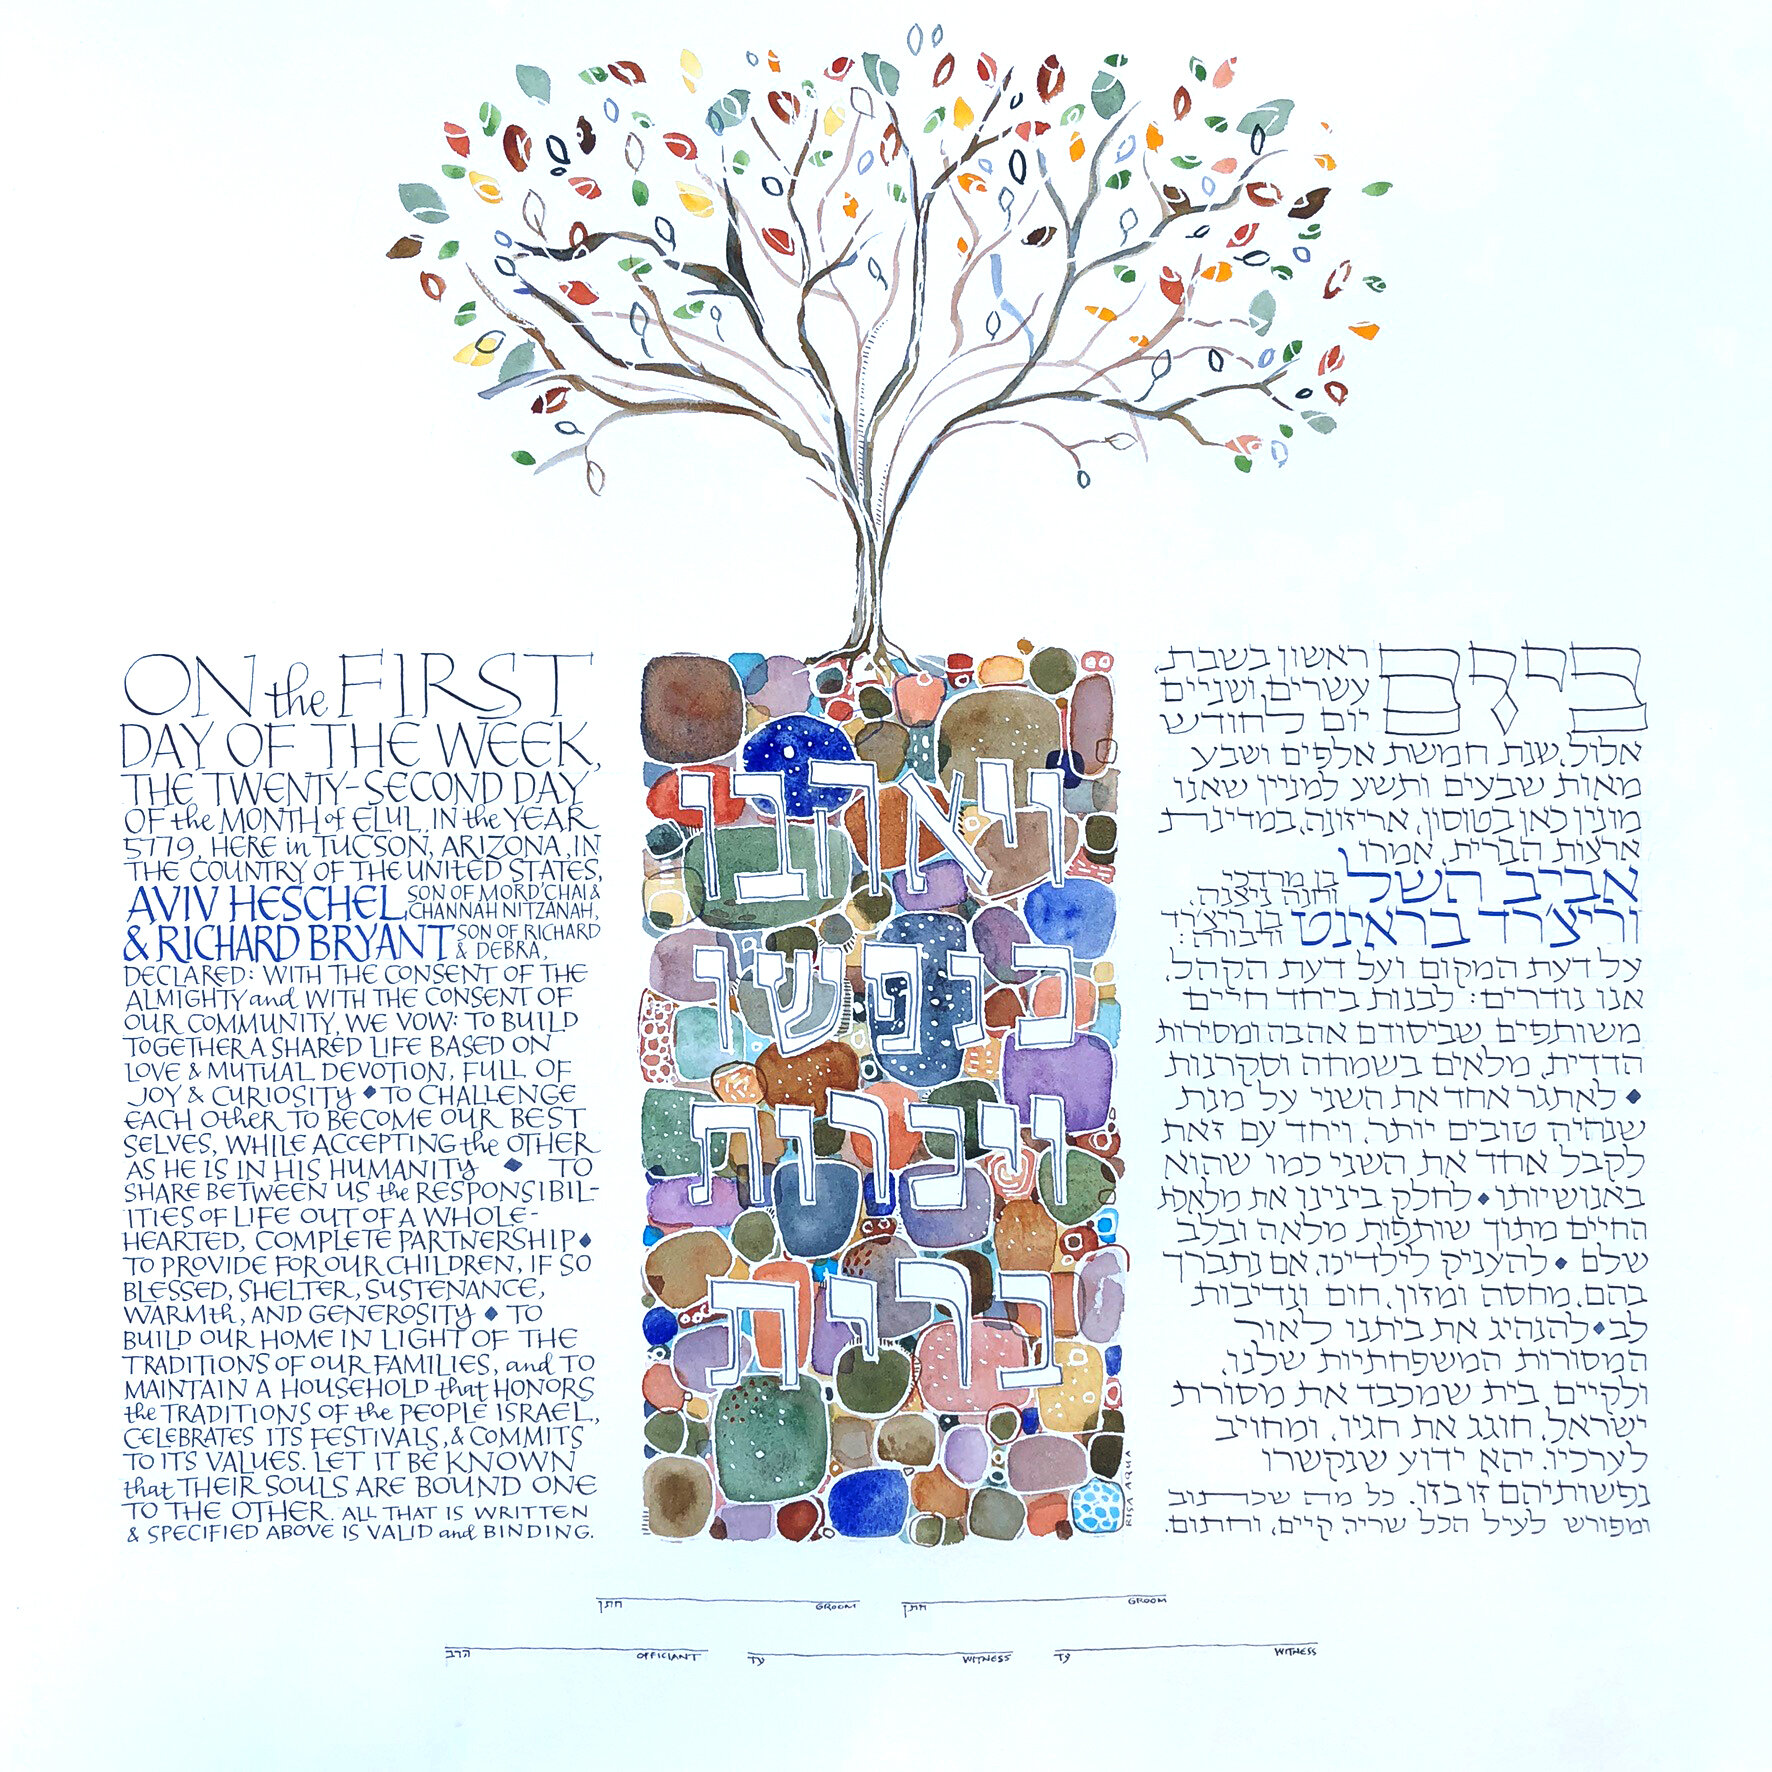 ON the FIRST
DAY OF THE WEEK,
THE TWENTY-SECOND DAY
OF the MONTH of ELUL, IN the YEAR
5779, HERE in TUCSON, ARIZONA, IN
THE COUNTRY OF THE UNITED STATES,
AVIV HESCHEL, SON OF MORD'CHAI &
CHANNAH NITZANAH,
& RICHARD BRYANT SON OF RICHARD
& DEBRA,
DECLARED: WITH THE CONSENT OF THE
ALMIGHTY and WITH THE CONSENT OF
OUR COMMUNITY, WE VOW: TO BUILD
TOGETHER A SHARED LIFE BASED ON
LOVE & MUTUAL DEVOTION, FULL OF
JOY & CURIOSITY ◆ TO CHALLENGE
EACH OTHER TO BECOME OUR BEST
SELVES, WHILE ACCEPTING the OTHER
AS HE IS IN HIS HUMANITY ◆ TO
SHARE BETWEEN US the RESPONSIBIL-
ITIES OF LIFE OUT OF A WHOLE-
HEARTED, COMPLETE PARTNERSHIP ◆
TO PROVIDE FOR OUR CHILDREN, IF SO
BLESSED, SHELTER, SUSTENANCE,
WARMth, AND GENEROSITY ◆ TO
BUILD OUR HOME IN LIGHT OF THE
TRADITIONS OF OUR FAMILIES, and TO
MAINTAIN A HOUSEHOLD that HONORS
the TRADITIONS OF the PEOPLE ISRAEL,
CELEBRATES ITS FESTIVALS, & COMMITS
TO ITS VALUES. LET IT BE KNOWN
that THEIR SOULS ARE BOUND ONE
TO THE OTHER. ALL THAT IS WRITTEN
& SPECIFIED ABOVE IS VALID and BINDING.
ויאהבו
כנפשו
ויכרות
ברית
RISA AQUA
ביום
ראשון בשבת,
עשרים ושניים
יום לחודש
אלול, שנת חמשת אלפים ושבע
מאות שבעים ותשע למניין שאנו
מונין כאן בטוסון, אריזונה, במדינת
ארצות הברית, אמרו
אביב השל בן מרדכי
וחנה ניצנה,
וריצ'רד בראינט בן ריצ'רד
ודבורה:
על דעת המקום ועל דעת הקהל,
אנו נודרים: לבנות ביחד חיים
משותפים שביסודם אהבה ומסירות
הדדית, מלאים בשמחה וסקרנות
◆ לאתגר אחד את השני על מנת
שנהיה טובים יותר, ויחד עם זאת
לקבל אחד את השני כמו שהוא
באנושיותו ◆ לחלק בינינו את מלאכת
החיים מתוך שותפות מלאה ובלב
שלם ◆ להעניק לילדינו, אם נתברך
בהם, מחסה ומזון, חום ונדיבות
לב ◆ להנהיג את ביתנו לאור
המסורות המשפחתיות שלנו,
ולקיים בית שמכבד את מסורת
ישראל, חוגג את חגיו, ומחויב
לערכיו. יהא ידוע שנקשרו
נפשותיהם זו בזו. כל מה שכתוב
ומפורש לעיל הכל שריר, קיים, וחתום.
חתן GROOM חתן GROOM
הרב OFFICIANT עד WITNESS עד WITNESS